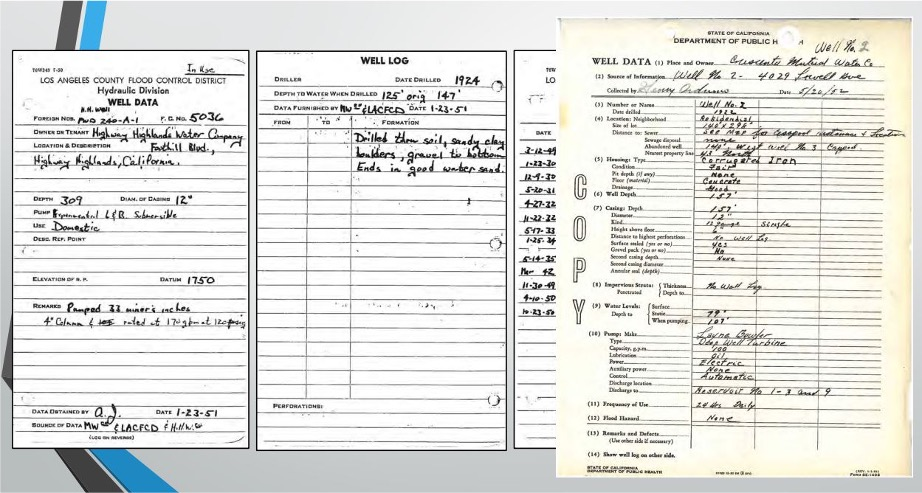 76W248 7-50
In Use
LOS ANGELES COUNTY FLOOD CONTROL DISTRICT
Hydraulic Division
WELL DATA
H.H. Well
FOREIGN NOS. PWD 240-A-1 F.C. NO. 5036
OWNER OR TENANT Highway Highlands Water Company
LOCATION & DESCRIPTION Foothill Blvd.,
Highway Highlands, California.
DEPTH 309 DIAM. OF CASING 12"
PUMP Experimental L & B. Submersible
USE Domestic
DESC. REF. POINT
ELEVATION OF R. P. DATUM 1750
REMARKS Pumped 33 miner's inches
4" Column & rated at 170 gpm at
DATA OBTAINED BY A.J. DATE 1-23-51
SOURCE OF DATA MW & LACFCD & H.H.W.Co
(LOG ON REVERSE)
WELL LOG
DRILLER DATE DRILLED 1924
DEPTH TO WATER WHEN DRILLED 125' orig 147'
DATA FURNISHED BY MW & LACFCD DATE 1-23-51
FROM TO FORMATION
Drilled thru soil, sandy clay
boulders, gravel to bottom
Ends in good water sand.
PERFORATIONS:
LO
DATE
3-12-29
1-23-30
12-9-30
5-20-31
4-27-32
11-22-32
5-17-33
1-25-34
5-14-35
Mar 42
11-30-49
4-10-50
10-23-50
STATE OF CALIFORNIA
DEPARTMENT OF PUBLIC H
Well No. 2
WELL DATA (1) Place and Owner Crescenta Mutual Water Co
(2) Source of Information Well No 2 - 4029 Lowell Ave
Collected by Henry Date 5/20/52
(3) Number or Name Well No. 2
Date drilled 1932
(4) Location: Neighborhood Residential
Size of lot 140 x 295
Distance to: Sewer See Map for Cesspool distances & Location
Sewage disposal none
Abandoned well 140' West Well No 3 Capped.
Nearest property line 43 North
(5) Housing: Type Corrugated Iron
Condition Fair
Pit depth (if any) None
Floor (material) Concrete
Drainage Good
(6) Well Depth 157'
(7) Casing: Depth 157'
Diameter 12"
Kind 12 gauge Single
Height above floor
Distance to highest perforations No Well Log
Surface sealed (yes or no) yes
Gravel pack (yes or no) No
Second casing depth None
Second casing diameter
Annular seal (depth)
(8) Impervious Strata: Thickness No Well Log
Penetrated Depth to
(9) Water Levels: Surface
Depth to Static 79'
When pumping 107'
(10) Pump: Make Layne Bowler
Type Deep Well Turbine
Capacity, g.p.m. 100
Lubrication Oil
Power Electric
Auxiliary power None
Control Automatic
Discharge location
Discharge to Reservoir No 1 - 3 and 9
(11) Frequency of Use 24 hrs Daily
(12) Flood Hazard None
(13) Remarks and Defects
(Use other side if necessary)
(14) Show well log on other side.
STATE OF CALIFORNIA
DEPARTMENT OF PUBLIC HEALTH
COPY